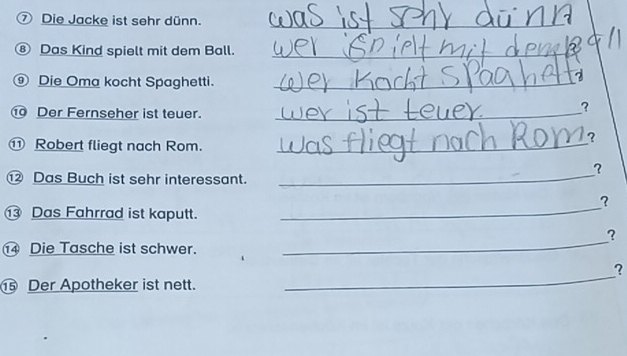 ⑦ Die Jacke ist sehr dünn. was ist sehr dünn?
⑧ Das Kind spielt mit dem Ball. wer spielt mit dem Ball
⑨ Die Oma kocht Spaghetti. wer kocht Spaghetti
⑩ Der Fernseher ist teuer. wer ist teuer. ?
⑪ Robert fliegt nach Rom. was fliegt nach Rom ?
⑫ Das Buch ist sehr interessant. ?
⑬ Das Fahrrad ist kaputt. ?
⑭ Die Tasche ist schwer. ?
⑮ Der Apotheker ist nett. ?